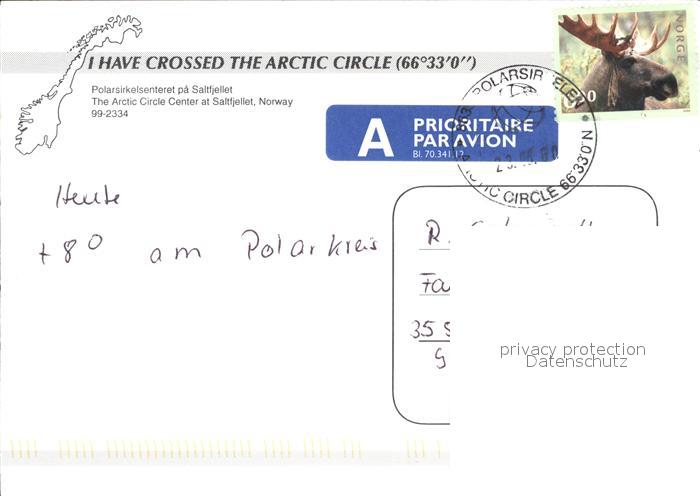 I HAVE CROSSED THE ARCTIC CIRCLE (66°33'0'')
Polarsirkelsenteret på Saltfjellet
The Arctic Circle Center at Saltfjellet, Norway
99-2334
NORGE
A PRIORITAIRE
PAR AVION
Bl. 70.341.12
ARCTIC CIRCLE 66°33'0 N
Heute
+8° am Polarkreis
R.
35
privacy protection
Datenschutz